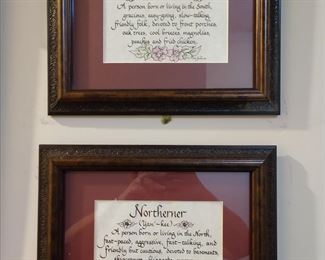 A person born or living in the South,
gracious, easy-going, slow-talking,
friendly folk, devoted to front porches,
oak trees, cool breezes, magnolias,
peaches and fried chicken.
Northerner
(Yan'-kee)
A person born or living in the North,
fast-paced, aggressive, fast-talking, and
friendly but cautious, devoted to basements,